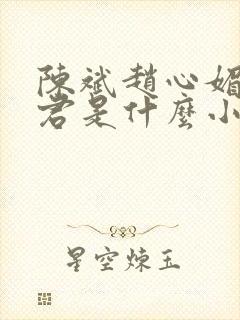 陳斌趙心媚
君是什麼小
星空煉玉